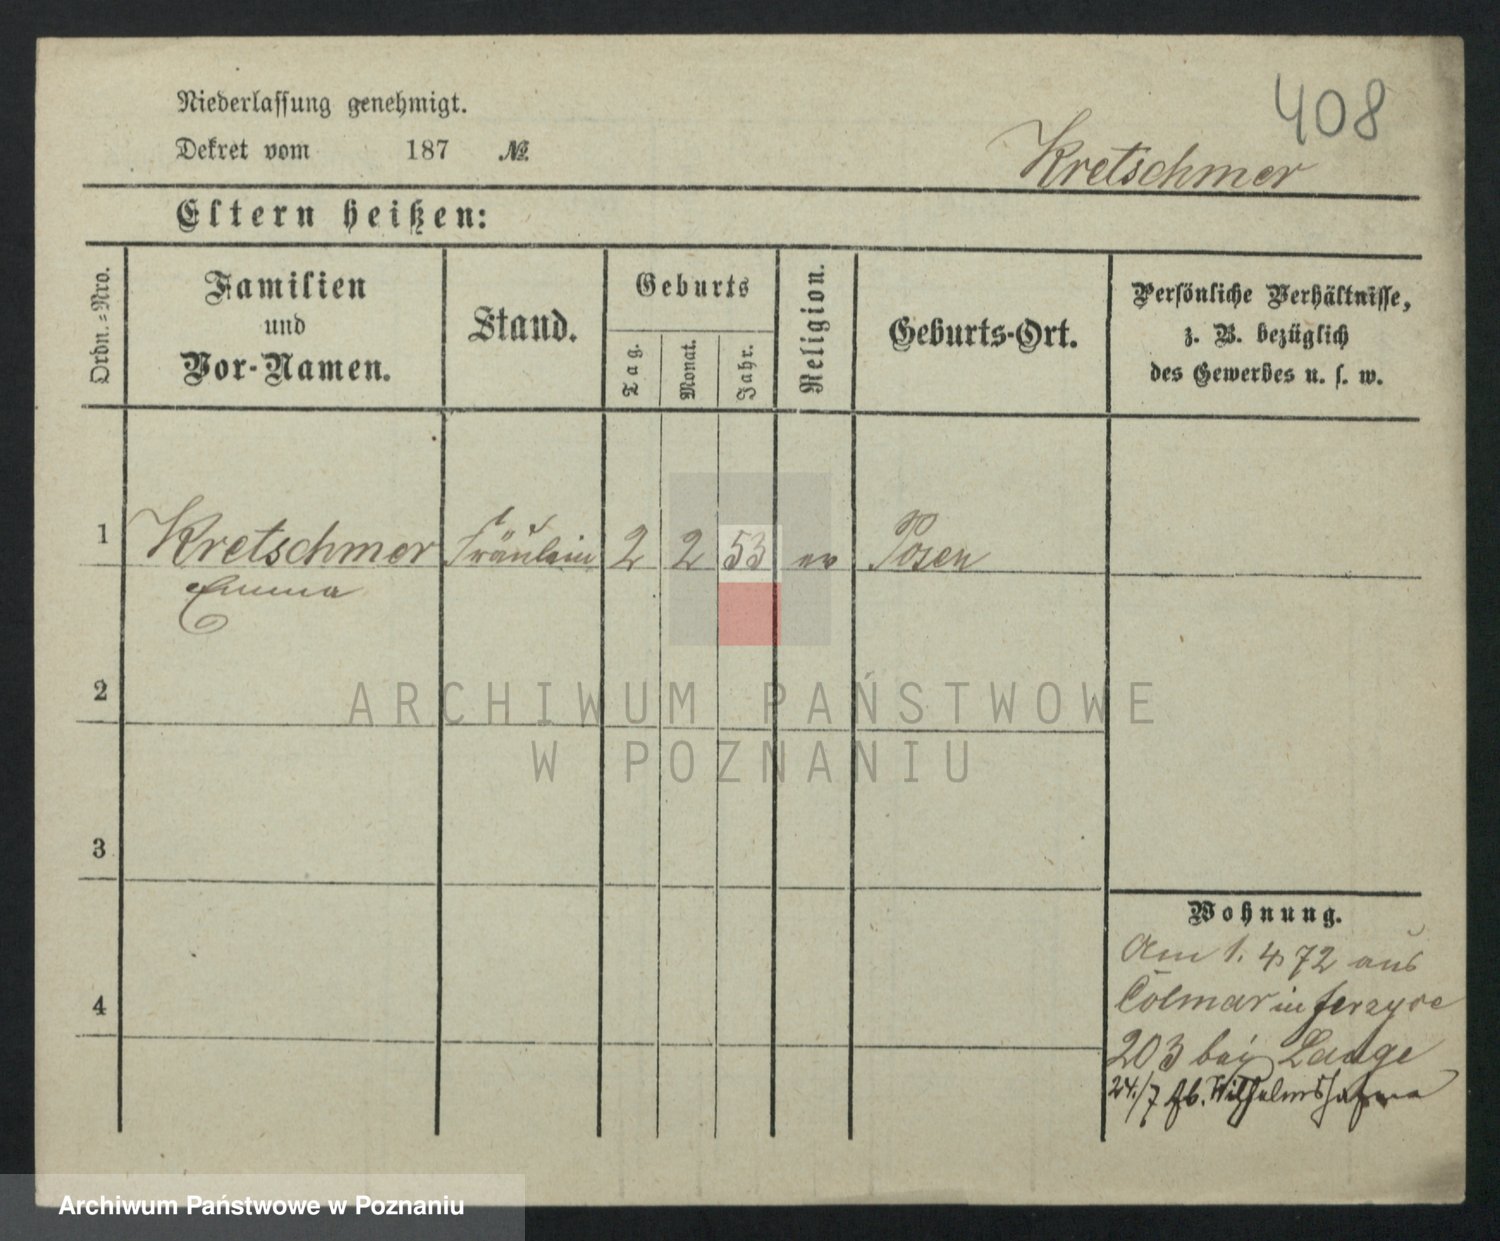 408
Niederlassung genehmigt.
Dekret vom 187 №
Kretschmer
Eltern heißen:
Ordn.-Nro.
Familien
und
Vor-Namen.
Stand.
Geburts
Tag.
Monat.
Jahr.
Religion.
Geburts-Ort.
Persönliche Verhältnisse,
z. B. bezüglich
des Gewerbes u. s. w.
1 Kretschmer Fräulein 2 2 53 ev Posen
Emma
2
3
4
Wohnung.
Am 1. 4 72 aus
Colmar in
203 bei Lange
24./7 Wilhelmshafen
ARCHIWUM PAŃSTWOWE
W POZNANIU
Archiwum Państwowe w Poznaniu